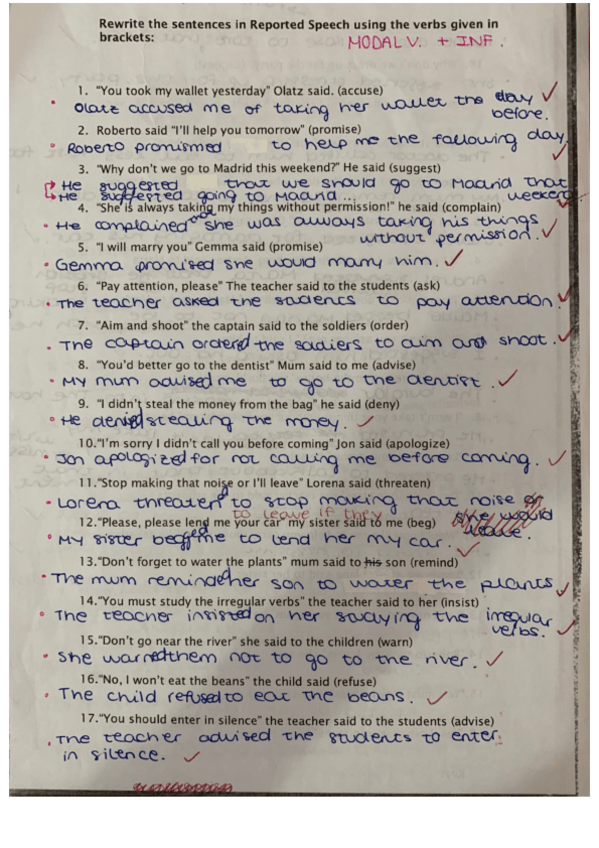 Rewrite the sentences in Reported Speech using the verbs given in
brackets: MODAL V. + INF.
1. "You took my wallet yesterday" Olatz said. (accuse)
Olatz accused me of taking her wallet the day
before.
2. Roberto said "I'll help you tomorrow" (promise)
Roberto promismed to help me the following day.
3. "Why don't we go to Madrid this weekend?" He said (suggest)
He suggested that we should go to Madrid that
weekend
He suggested going to Madrid...
4. "She is always taking my things without permission!" he said (complain)
He complained she was always taking his things
without permission.
5. "I will marry you" Gemma said (promise)
Gemma promised she would marry him.
6. "Pay attention, please" The teacher said to the students (ask)
The teacher asked the students to pay attention.
7. "Aim and shoot" the captain said to the soldiers (order)
The captain ordered the soldiers to aim and shoot.
8. "You'd better go to the dentist" Mum said to me (advise)
My mum advised me to go to the dentist.
9. "I didn't steal the money from the bag" he said (deny)
He denied stealing the money.
10."I'm sorry I didn't call you before coming" Jon said (apologize)
Jon apologized for not calling me before coming.
11."Stop making that noise or I'll leave" Lorena said (threaten)
Lorena threatened to stop making that noise or
to leave if they she would
leave.
12."Please, please lend me your car" my sister said to me (beg)
My sister begged me to lend her my car.
13."Don't forget to water the plants" mum said to his son (remind)
The mum reminded her son to water the plants
14."You must study the irregular verbs" the teacher said to her (insist)
The teacher insisted on her studying the irregular
verbs.
15."Don't go near the river" she said to the children (warn)
She warned them not to go to the river.
16."No, I won't eat the beans" the child said (refuse)
The child refused to eat the beans.
17."You should enter in silence" the teacher said to the students (advise)
The teacher advised the students to enter
in silence.